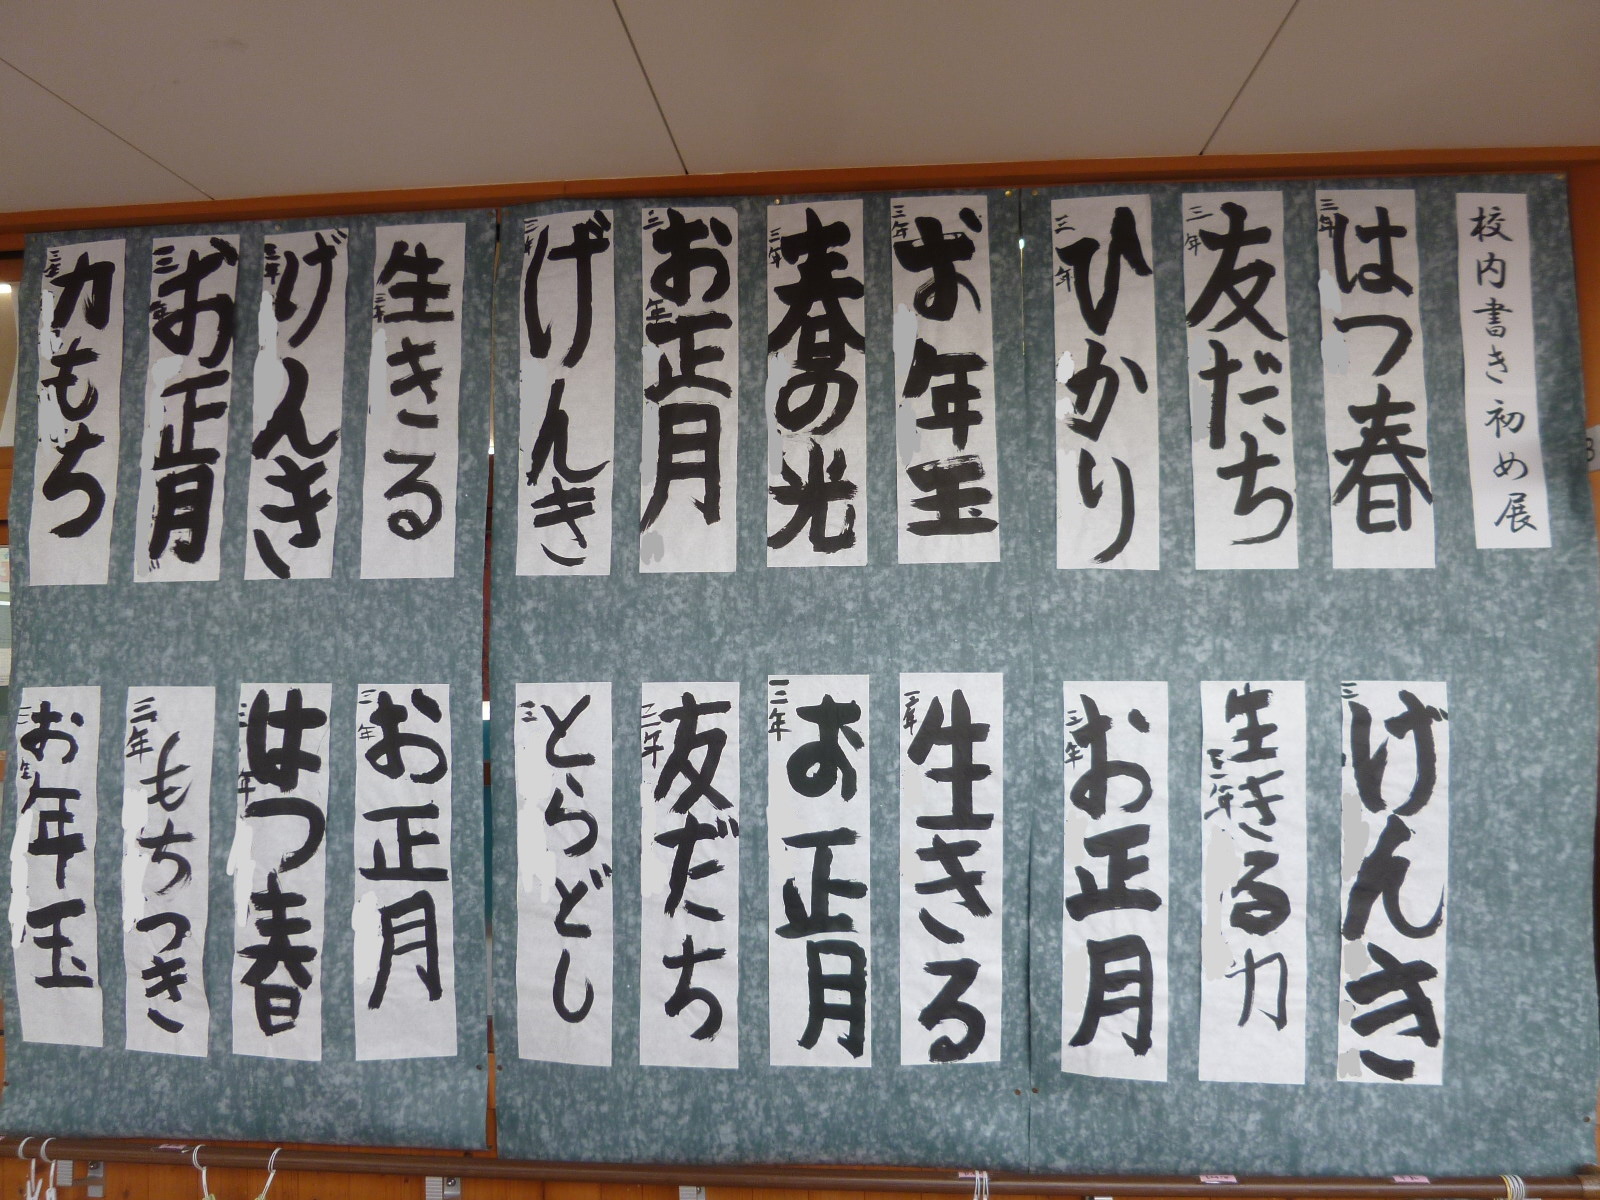 校内書き初め展
三年 はつ春
三年 友だち
三年 ひかり
三年 お年玉
三年 春の光
三年 お正月
三年 げんき
三年 生きる
三年 げんき
三年 お正月
三年 力もち
三 げんき
三年 生きる力
三年 お正月
三年 生きる
三年 お正月
三年 友だち
三 とらどし
三年 お正月
三年 はつ春
三年 もちつき
三年 お年玉